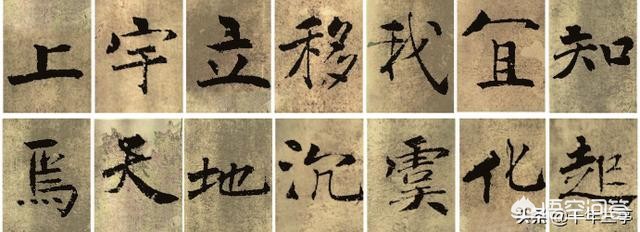 上宇立移我宜知
焉天地沉虞化起
悟空问答
头条